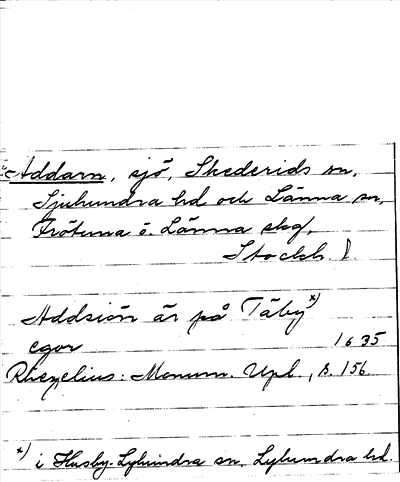 Addarn, sjö, Skederids sn,
Sjuhundra hd och Länna sn,
Frötuna o. Länna skg,
Stockh. l.
Addsiön är på Täby x)
egor 1635
Rhezelius: Monum. Upl., s. 156
x) i Husby-Lyhundra sn, Lyhundra hd.